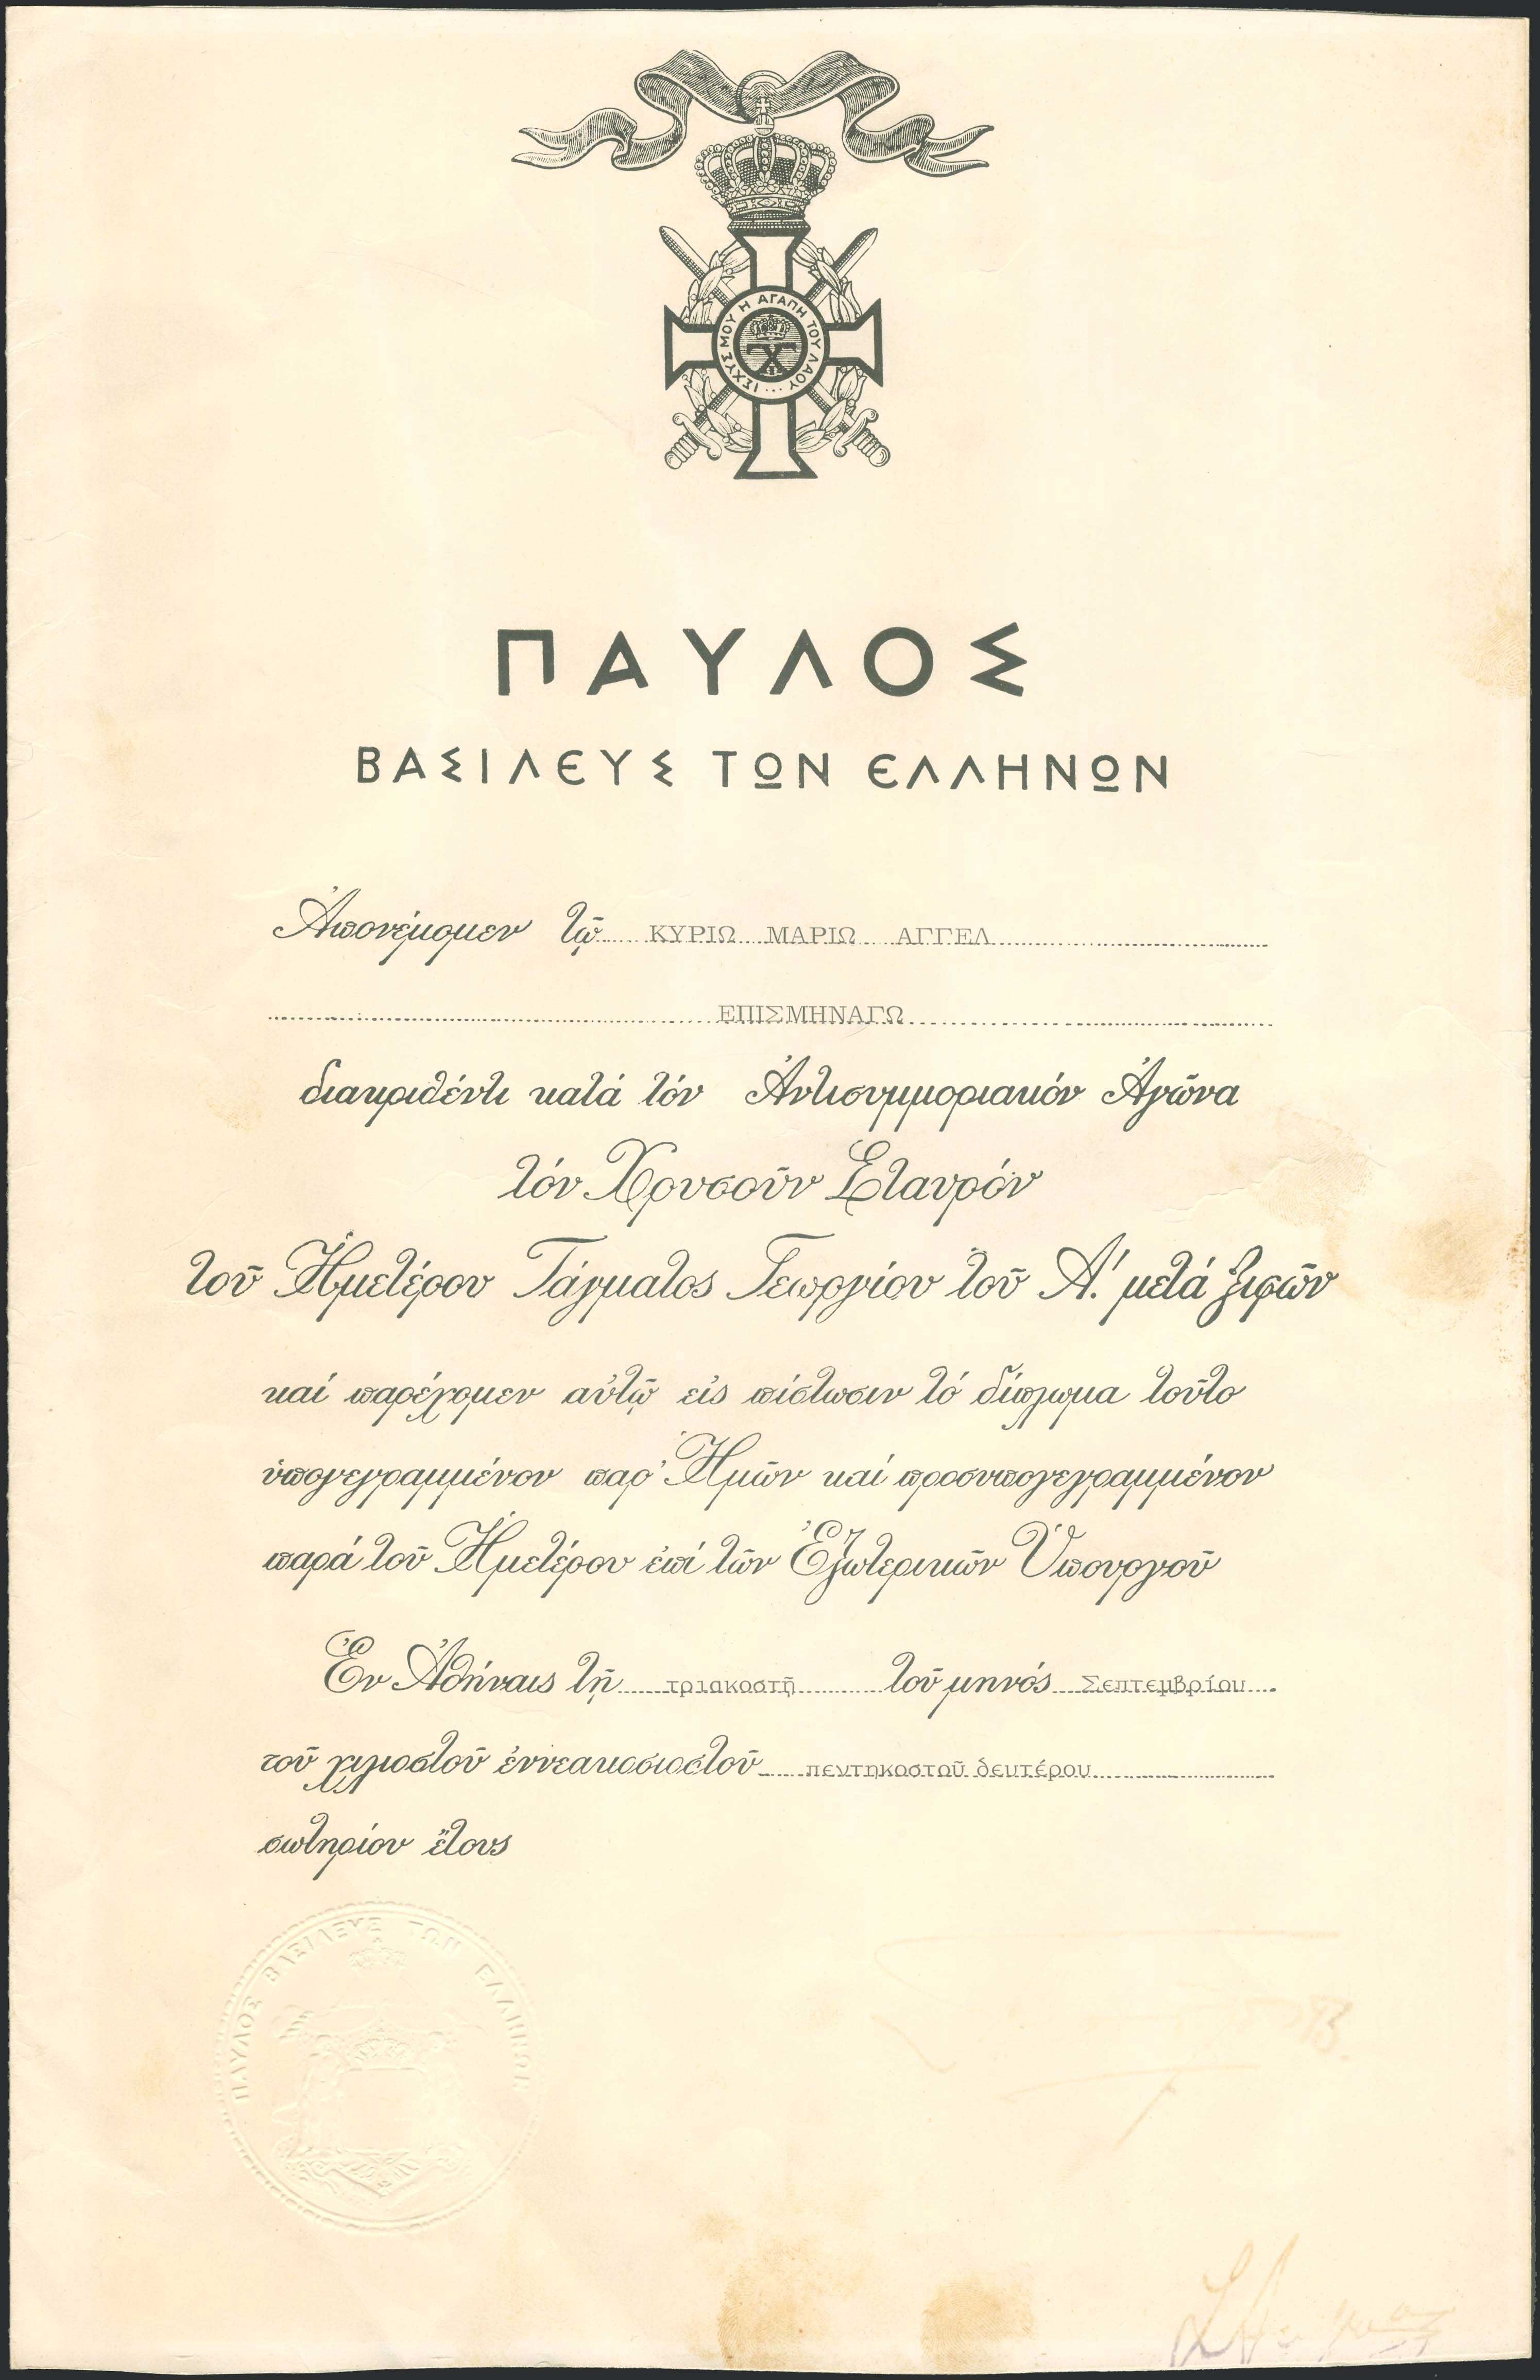 ΙΣΧΥΣ ΜΟΥ Η ΑΓΑΠΗ ΤΟΥ ΛΑΟΥ...
ΠΑΥΛΟΣ
ΒΑΣΙΛΕΥΣ ΤΩΝ ΕΛΛΗΝΩΝ
Ἀπονέμομεν τῷ ΚΥΡΙΩ ΜΑΡΙΩ ΑΓΓΕΛ
ΕΠΙΣΜΗΝΑΓΩ
διακριθέντι κατά τόν Ἀντισυμμοριακόν Ἀγῶνα
τόν Χρυσοῦν Σταυρόν
τοῦ Ἡμετέρου Τάγματος Γεωργίου τοῦ Α΄. μετά ξιφῶν
καί παρέχομεν αὐτῷ εἰς πίστωσιν τό δίπλωμα τοῦτο
ὑπογεγραμμένον παρ' Ἡμῶν καί προσυπογεγραμμένον
παρά τοῦ Ἡμετέρου ἐπί τῶν Ἐξωτερικῶν Ὑπουργοῦ
Ἐν Ἀθήναις τῇ τριακοστῇ τοῦ μηνός Σεπτεμβρίου
τοῦ χιλιοστοῦ ἐννεακοσιοστοῦ πεντηκοστοῦ δευτέρου
σωτηρίου ἔτους
ΠΑΥΛΟΣ ΒΑΣΙΛΕΥΣ ΤΩΝ ΕΛΛΗΝΩΝ